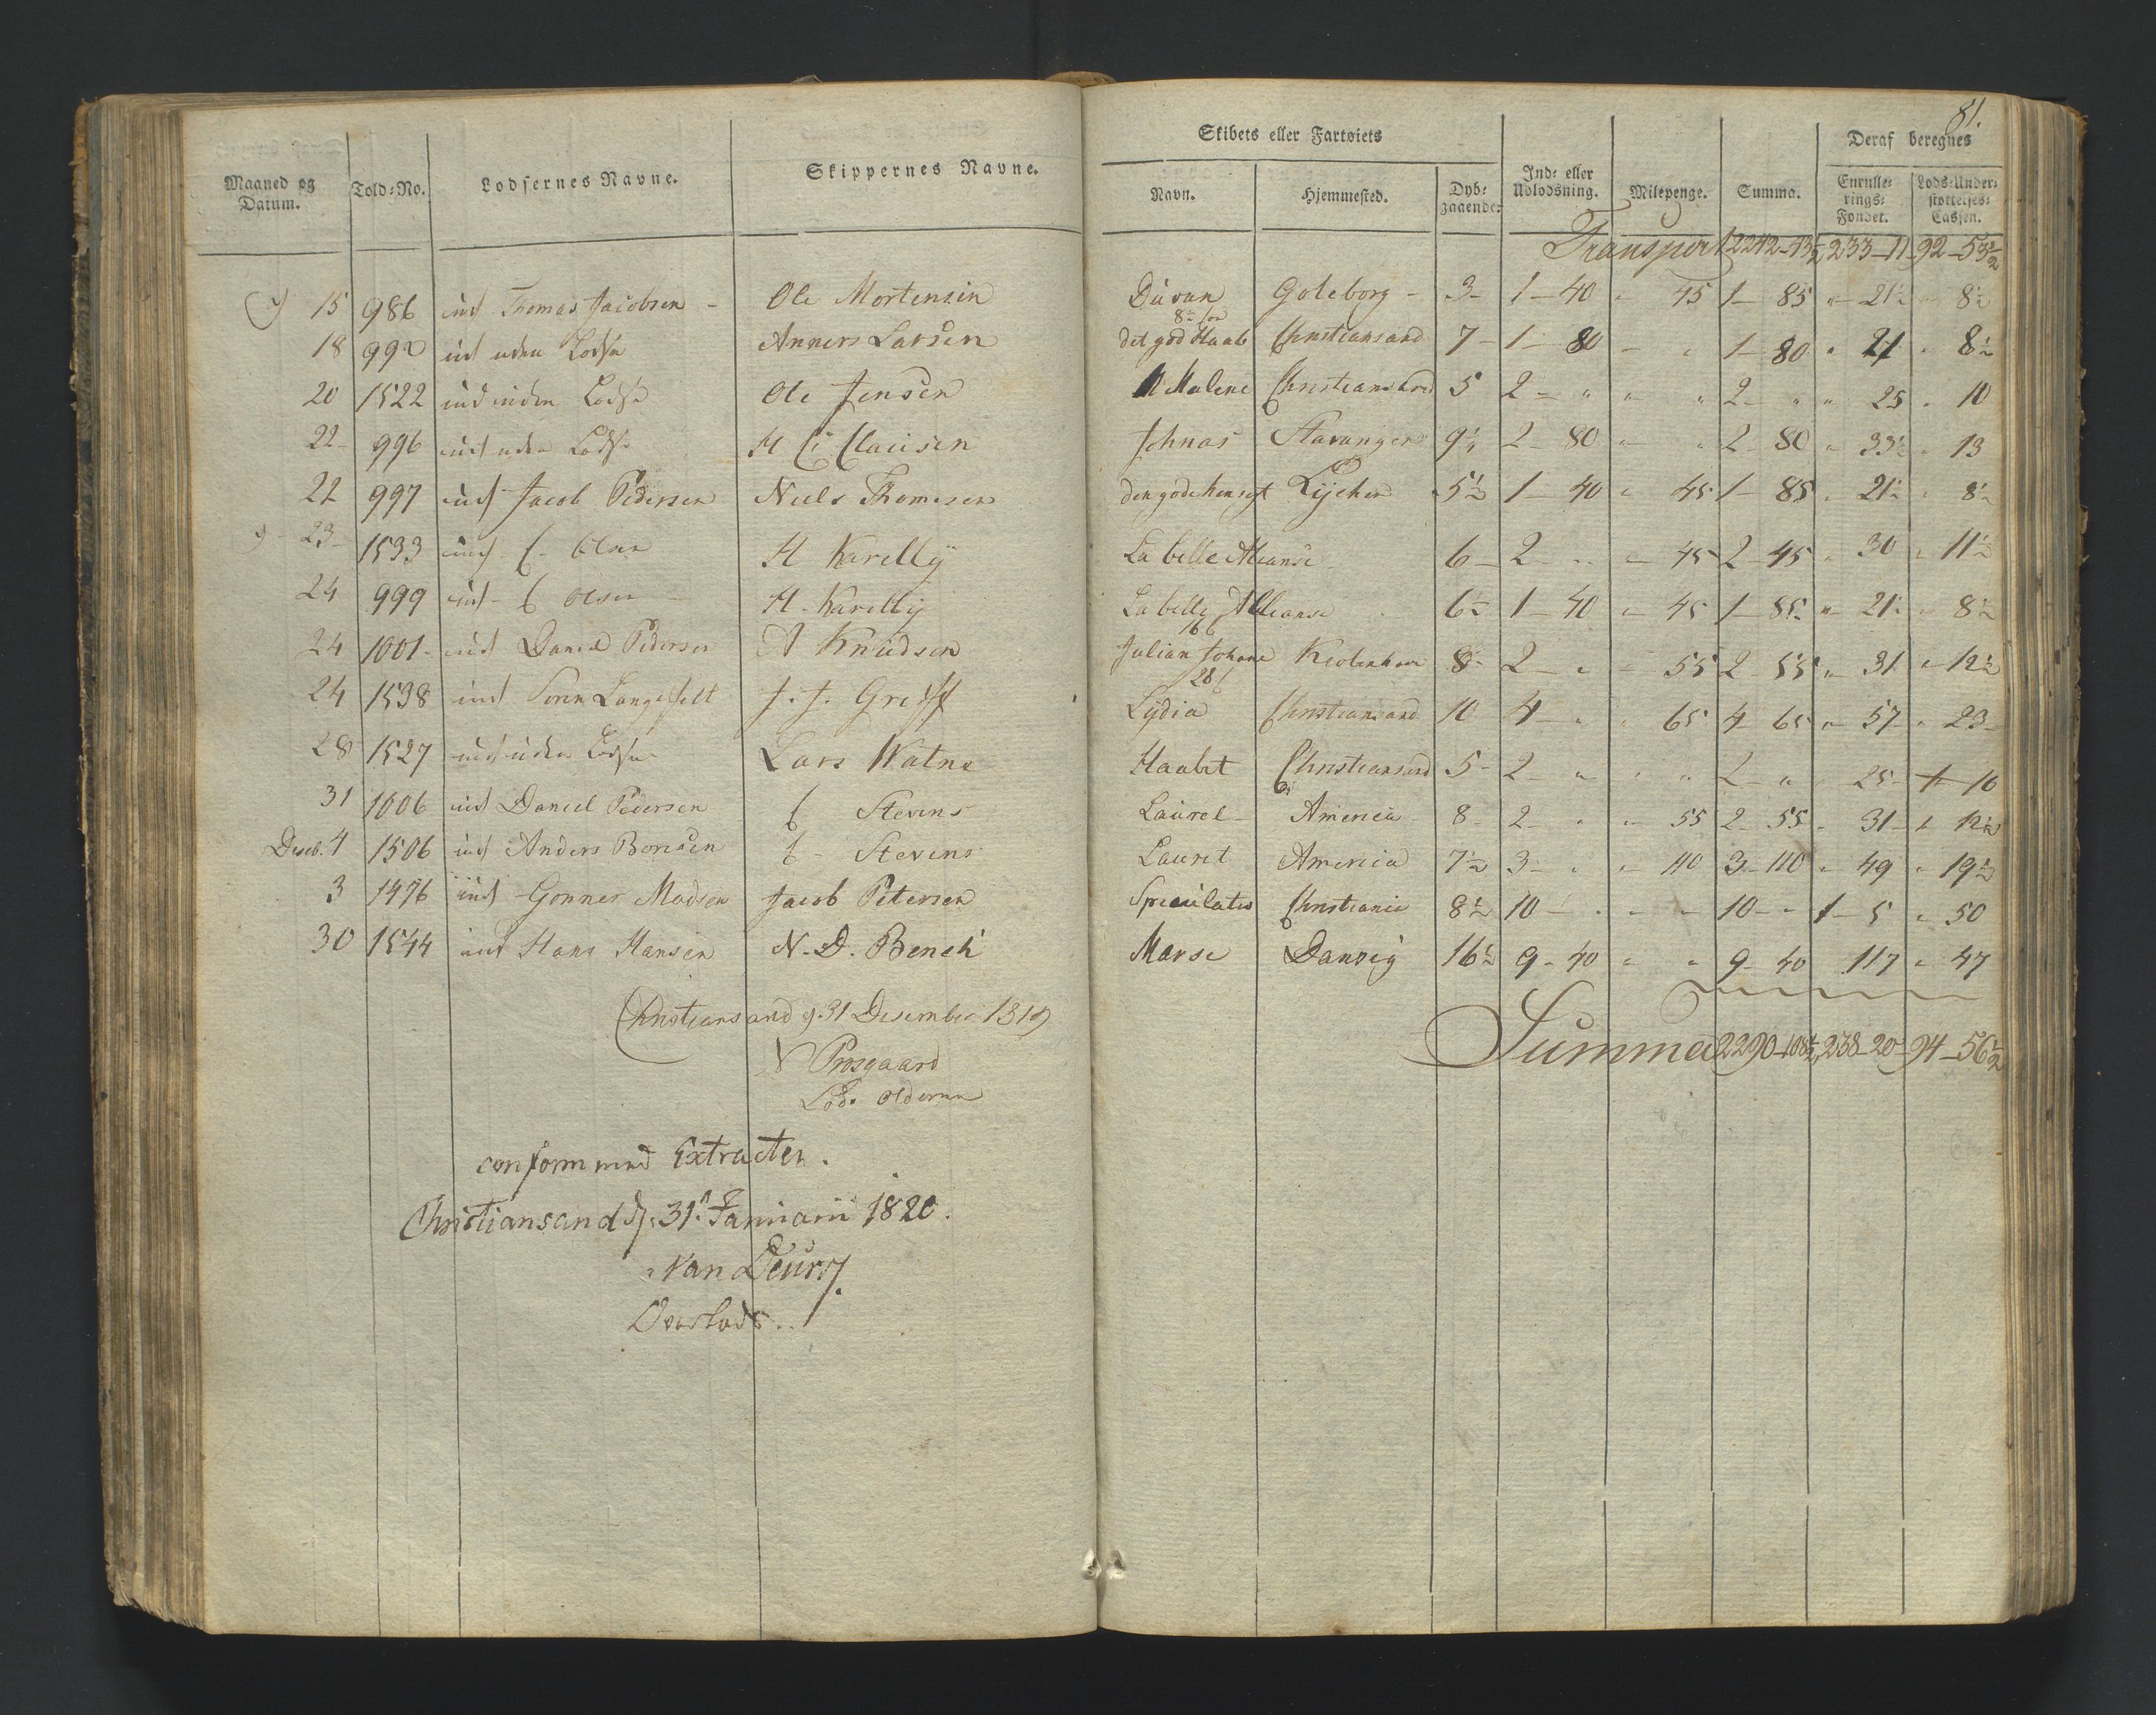 81.
Maaned og Datum. Told-No. Lodsernes Navne. Skippernes Navne. Skibets eller Fartøiets Navn. Hjemmested. Dybgaaende. Ind- eller Udlodsning. Milepenge. Summa. Deraf beregnes Enrullerings-Fondet. Lods-Understøttelses-Cassen.
Transport 2242-13½ 233-11 92-53½
15 986 ind Thomas Jacobsen - Ole Mortensen Duvan Goteborg - 3- 1-40 " 45 1-85 "-21½ " 8½
18 992 ind uden Lodse Anners Larsen det god Haab Christiansand 7- 1-80 - " 1-80 " 21 " 8½
20 1522 ind uden Lodse Ole Jensen M Malene Christiansand 5 2- " " " 2- " " 25 " 10
22- 996 ind uden Lodse H C Clausen Johnas Stavanger 9½ 2-80 " " 2-80 " 33½ " 13
22 997 ind Jacob Pedersen Niels Thomesen den gode hensigt 5½ 1-40 " 45 1-85 " 21½ " 8½
23- 1533 ind C Olsen H Karelly La belle Alianse 6- 2- " - 45 2-45 " 30 " 11½
24 999 ind - C Olsen H. Karelly La belle Allianse 6½ 1-40 " 45 1-85 " 21½ " 8½
24 1001- ind Daniel Pedersen A Knudsen 166 Julian Johane Kiobenhavn 8- 2- " - 55 2-55 " 31 " 12½
24 1538 ind Soren Langefelt J. J. Greiff 28 Lydia Christiansand 10 4- " " 65 4-65 " 57 " 23-
28 1527 ind uden Lodse Lars Watne Haabet Christiansand 5- 2- " " " 2- " 25- 10
31 1006 ind Daniel Pedersen C Stevens Laurel- America 8- 2- " " 55 2-55- 31- " 12½
Deseb. 1 1506 ind Anders Borresen C- Stevens Lauret America 7½ 3- " " 110 3-110 " 49 " 19½
3 1476 ind Gonner Madsen Jacob Petersen Speculatis Christiania 8½ 10- " - - 10- - 1-5 " 50
30 1544 ind Hans Hansen N. D. Bench Marse Danzig 16½ 9-40 " " 9-40 117 " 47
Christiansand d. 31 Desember 1819
N Prosgaard
Lods Olderman
Summa 2290-108½ 238-20- 94-56½
conform med Extracten.
Christiansand d. 31te Januarii 1820.
van Deurs.
Overlods..